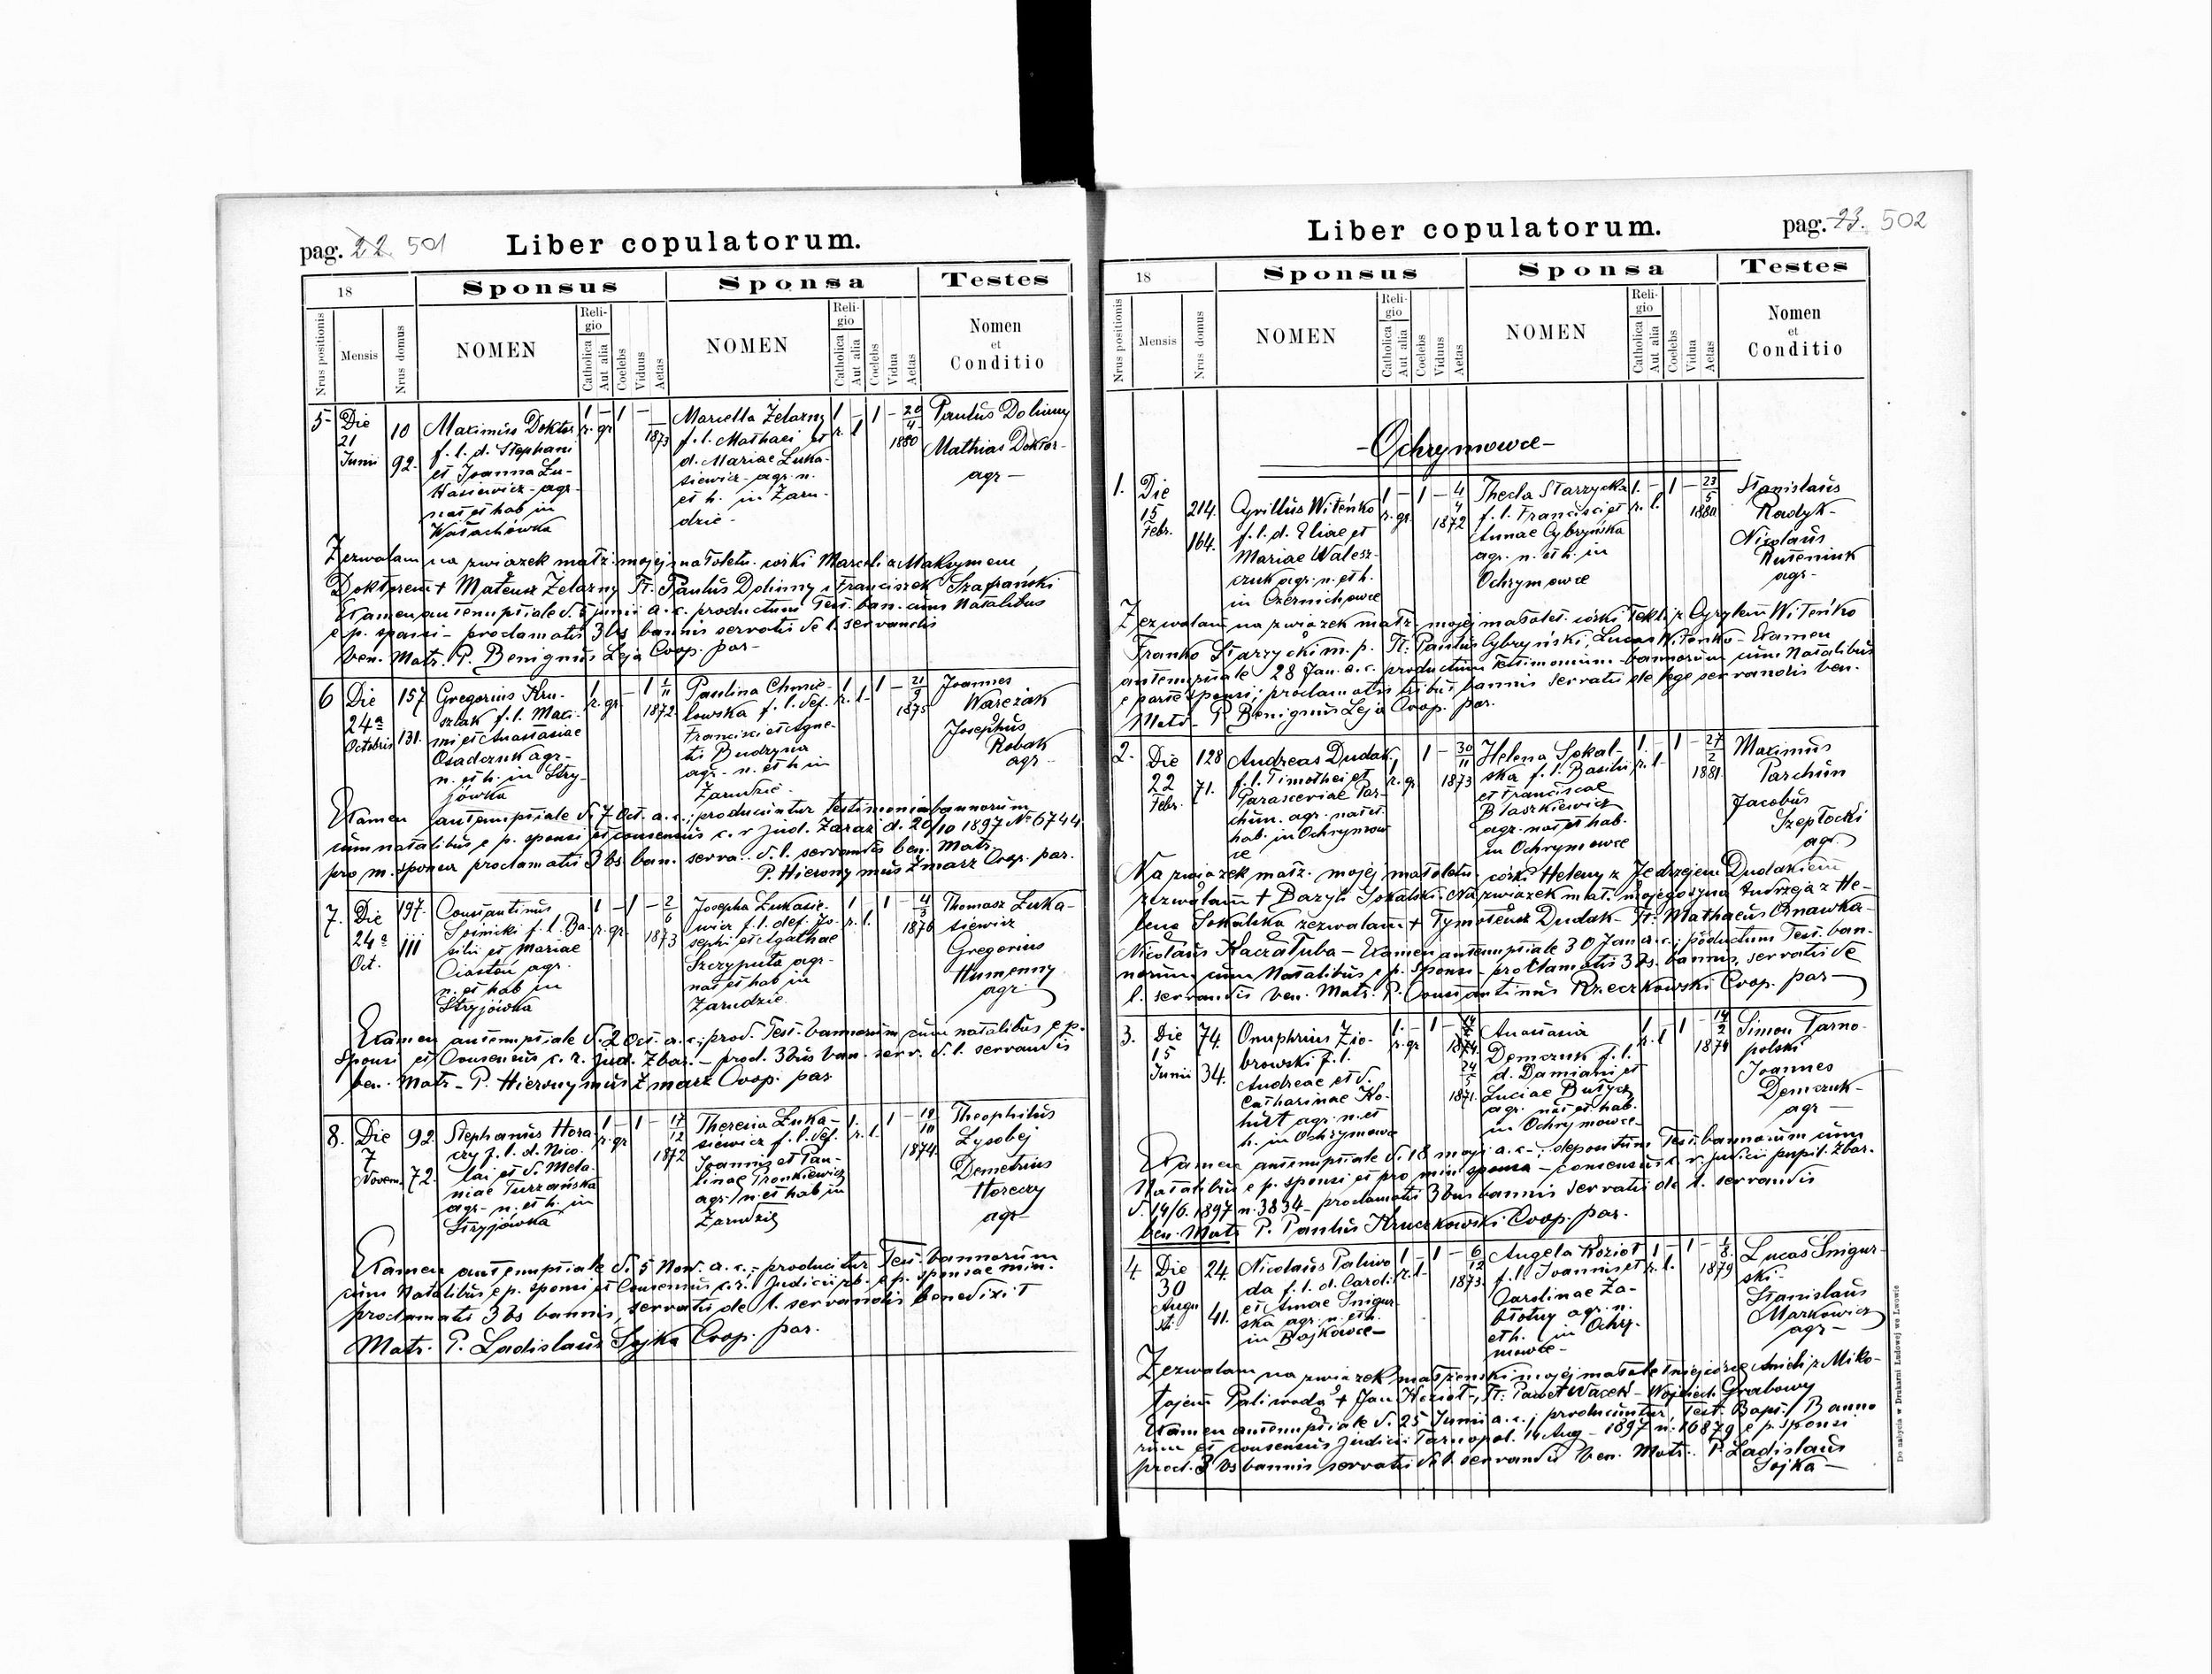 pag. 22 501
Liber copulatorum.
18
Sponsus
Sponsa
Testes
Nrus positionis
Mensis
Nrus domus
NOMEN
Reli-
gio
Catholica
Aut alia
Coelebs
Viduus
Aetas
NOMEN
Reli-
gio
Catholica
Aut alia
Coelebs
Vidua
Aetas
Nomen
et
Conditio
5
Die
21
Junii
10
92.
Maximus Doktor
f. l. d. Stephani
et Joanna Lu-
kasiewicz agr-
nat et hab in
Wałachówka
1 – 1 –
r. gr
1873
Marcella Żelazny
f. l. Mathaei et
d. Mariae Łuka-
siewicz agr. n.
et h. in Zaru-
dzie -
1 – 1 – 20
r. l 4
1880
Paulus Dolinny
Mathias Doktor-
agr –
Zezwalam na związek małż. mojej małoletn. córki Marceli z Maksymem
Doktorem + Mateusz Żelazny Tt. Paulus Dolinny i Franciszek Szafrański
Examen antenuptiale d. 5 junii a. c. productum Test. ban. cum Natalibus
e p. sponsi – proclamatis 3bs bannis servatis de l. servandis
ben. Matr. P. Benignus Leja Coop. par –
6
Die
24a
Octobris
157
131.
Gregorius Kru-
szlak f. l. Maxi-
mi et Anastasiae
Osadczuk agr-
n. et h. in Stry-
jówka
1 – 1 1
r. gr 11
1872.
Paulina Chmie-
lowska f. l. def.
Francisci et Agne-
tis Budzyna
agr. n. et h in
Zarudzie.
1 – 1 – 21
r. l. 9
1875
Joannes
Wareżak
Josephus
Robak
agr -
Examen antenuptiale d. 7 Oct. a. c.; producuntur testimonia bannorum
cum natalibus e p. sponsi et consensus c. r Jud. Zaraż d. 20/10 1897 No 6744
pro m. sponsa proclamatis 3bs ban. serva. d. l. servandis ben. Matr.
P. Hieronymus Żmarz Coop. par.
7.
Die
24a
Oct.
197
111
Constantinus
f. l. Ba-
silii et Mariae
Ciastoń agr.
n. et hab in
Stryjówka
1 – 1 – 2
r. gr. 6
1873
Josepha Łukasie-
wicz f. l. def. Jo-
sephi et Agathae
Szczyputa agr-
nat et hab in
Zarudzie.
1 – 1 – 4
r. l. 3
1876
Thomasz Łuka-
siewicz
Gregorius
Humenny
agr.
Examen antenuptiale d. 2 Oct. a. c. prod. Test. bannorum cum natalibus e p.
Sponsi et Consensus c. r. Jud. Zbar. – prod. 3bus ban. serv. d. l. servandis
ben. Matr – P. Hieronymus Żmarz Coop. par
8.
Die
7
Novem.
92.
72.
Stephanus Hora
czy f. l. d. Nico
lai et d. Mela-
niae Turzańska
agr. n. et h. in
Stryjówka
1 – 1 – 17
r. gr 12
1872
Theresia Łuka-
siewicz f. l. def.
Joannis et Pau-
linae Pronkiewicz
agr. n. et hab in
Zarudzie
1. 1 – 12
r. l. 10
1874
Theophilus
Łysobej
Demetrius
Horeczy
agr-
Examen antenuptiale d. 5 Nov. a. c. – producitur Test. bannorum
cum Natalibus e p. sponsi et Consensus c. r. Judicii zb. e p. sponsae min.
proclamatis 3bs bannis, servatis de l. servandis benedixit
Matr. P. Ladislaus Sojka Coop. par.
pag. 23. 502
Liber copulatorum.
18
Sponsus
Sponsa
Testes
Nrus positionis
Mensis
Nrus domus
NOMEN
Reli-
gio
Catholica
Aut alia
Coelebs
Viduus
Aetas
NOMEN
Reli-
gio
Catholica
Aut alia
Coelebs
Vidua
Aetas
Nomen
et
Conditio
- Ochrymowce -
1.
Die
15
Febr.
214.
164.
Cyrillus Witeńko
f. l. d. Eliae et
Mariae Walesz-
czuk agr. n. et h.
in Czernichowce
1 – 1 – 4
r. gr. 4
1872
Thecla Starzycka
f. l. Francisci et
Annae Cybryńska
agr. n. et h. in
Ochrymowce
1. – 1 – 23
r. l. 5
1880
Stanislaus
Radyk-
Nicolaus
Kuseniuk
agr-
Zezwalam na związek małż. mojej małolet. córki Tekli z Cyrylem Witeńko
Franko Starzycki m. p. Tt. Paulus Cybryński, Lucas Witenko – Examen
antenuptiale 28 Jan. a. c. productum Testimonium bannorum cum Natalibus
e parte sponsi; proclamatis tribus bannis servatis de lege servandis ben.
Matr – P. Benignus Leja Coop. par.
2.
Die
22
Febr.
128
71.
Andreas Dudak
f. l. Timothei et
Parasceviae Par-
chun. agr. nat et
hab. in Ochrymow
ce
1 – 30
r. gr 11
1873
Helena Sokal-
ska f. l. Basilii
et Franciscae
Błaszkiewicz
agr. nat et hab.
in Ochrymowce
1. – 1 – 27
r. l. 2
1881
Maximus
Parchun
Jacobus
Szeptocki
agr.
Na związek małż. mojej małoletn. córki Heleny z Jędrzejem Dudakiem
zezwalam + Bazyli Sokalski. Na związek mał. mojego syna Andrzeja z He-
leną Sokalską zezwalam + Tymoteusz Dudak – Tt. Mathaeus Ornawka-
Nicolaus Kaczałuba – Examen antenuptiale 30 Jan a. c.; productum Test. ban-
norum cum Natalibus e p. Sponsi – proclamatis 3bs. bannis, servatis de
l. servandis ben. Matr. P. Constantinus Rzeczkowski Coop. par –
3.
Die
15
Junii
74.
34.
Onuphrius Zio-
browski f. l.
Andreae et d.
Catharinae Ko-
hut agr. n. et
h. in Ochrymowce
1. – 1 –
r. gr
1874.
24
5
1871.
Anastasia
Demczuk f. l.
d. Damiani et
Luciae Butycz
agr. nat et hab.
in Ochrymowce -
1 1 – 14
r. l 2
1874
Simon Tarno-
polski
Joannes
Demczuk-
agr –
Examen antenuptiale d. 18 maji a. c. – depositum Test. bannorum cum
Natalibus e p. sponsi et pro min sponsa – consensus c. r. judicii pupil. Zbar.
d. 14/6. 1897 n. 3834 – proclamatis 3bus bannis servatis de l. servandis
ben. Matr P. Paulus Kruczkowski Coop. par.
4.
Die
30
Augu
sti
24.
41.
Nicolaus Paliwo
da f. l. d. Caroli
et Annae Snigur-
ska agr. n. et h.
in Bojkowce –
1 – 1 – 6
r. l. 12
1873.
Angela Kozioł
f. l. Joannis et
Carolinae Za-
błotny agr. n.
et h. in Ochry-
mowce -
1 – 1 – 1
r. l. 8.
1879
Lucas Snigur-
ski -
Stanislaus
Markowicz
agr –
Zezwalam na związek małżeński mojej małoletniej córce Anieli z Miko-
łajem Paliwodą + Jan Kozioł, Tt. Paweł Wacek – Wojciech Grabowy
Examen antenuptiale d. 25 Junii a. c.; producuntur Test. Bapt. Banno
rum et consensus judicii Tarnopol. 14 Aug – 1897 n. 16879 e p. sponsi
procl. 3bs bannis servatis d. l. servandis ben. Matr. P. Ladislaus
Sojka –
Do nabycia w Drukarni Ludowej we Lwowie